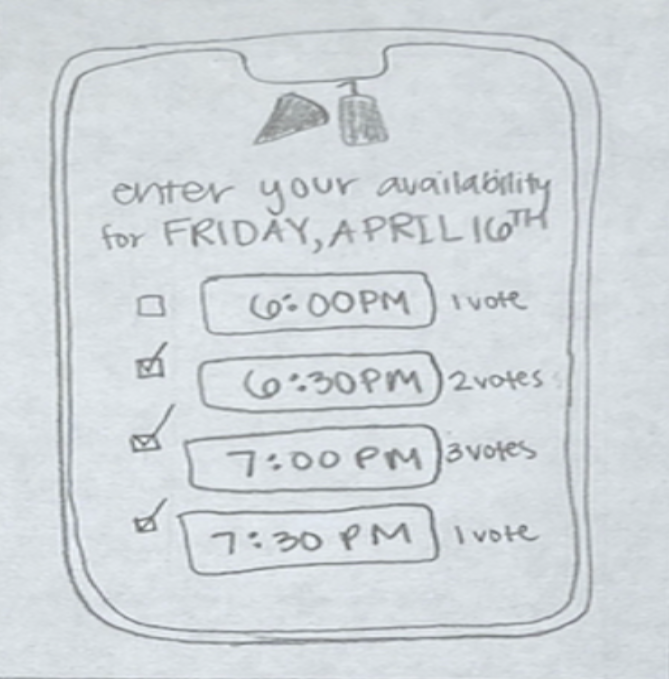 enter your availability
for FRIDAY, APRIL 16TH
6:00PM 1 vote
6:30PM 2 votes
7:00 PM 3 votes
7:30 PM 1 vote